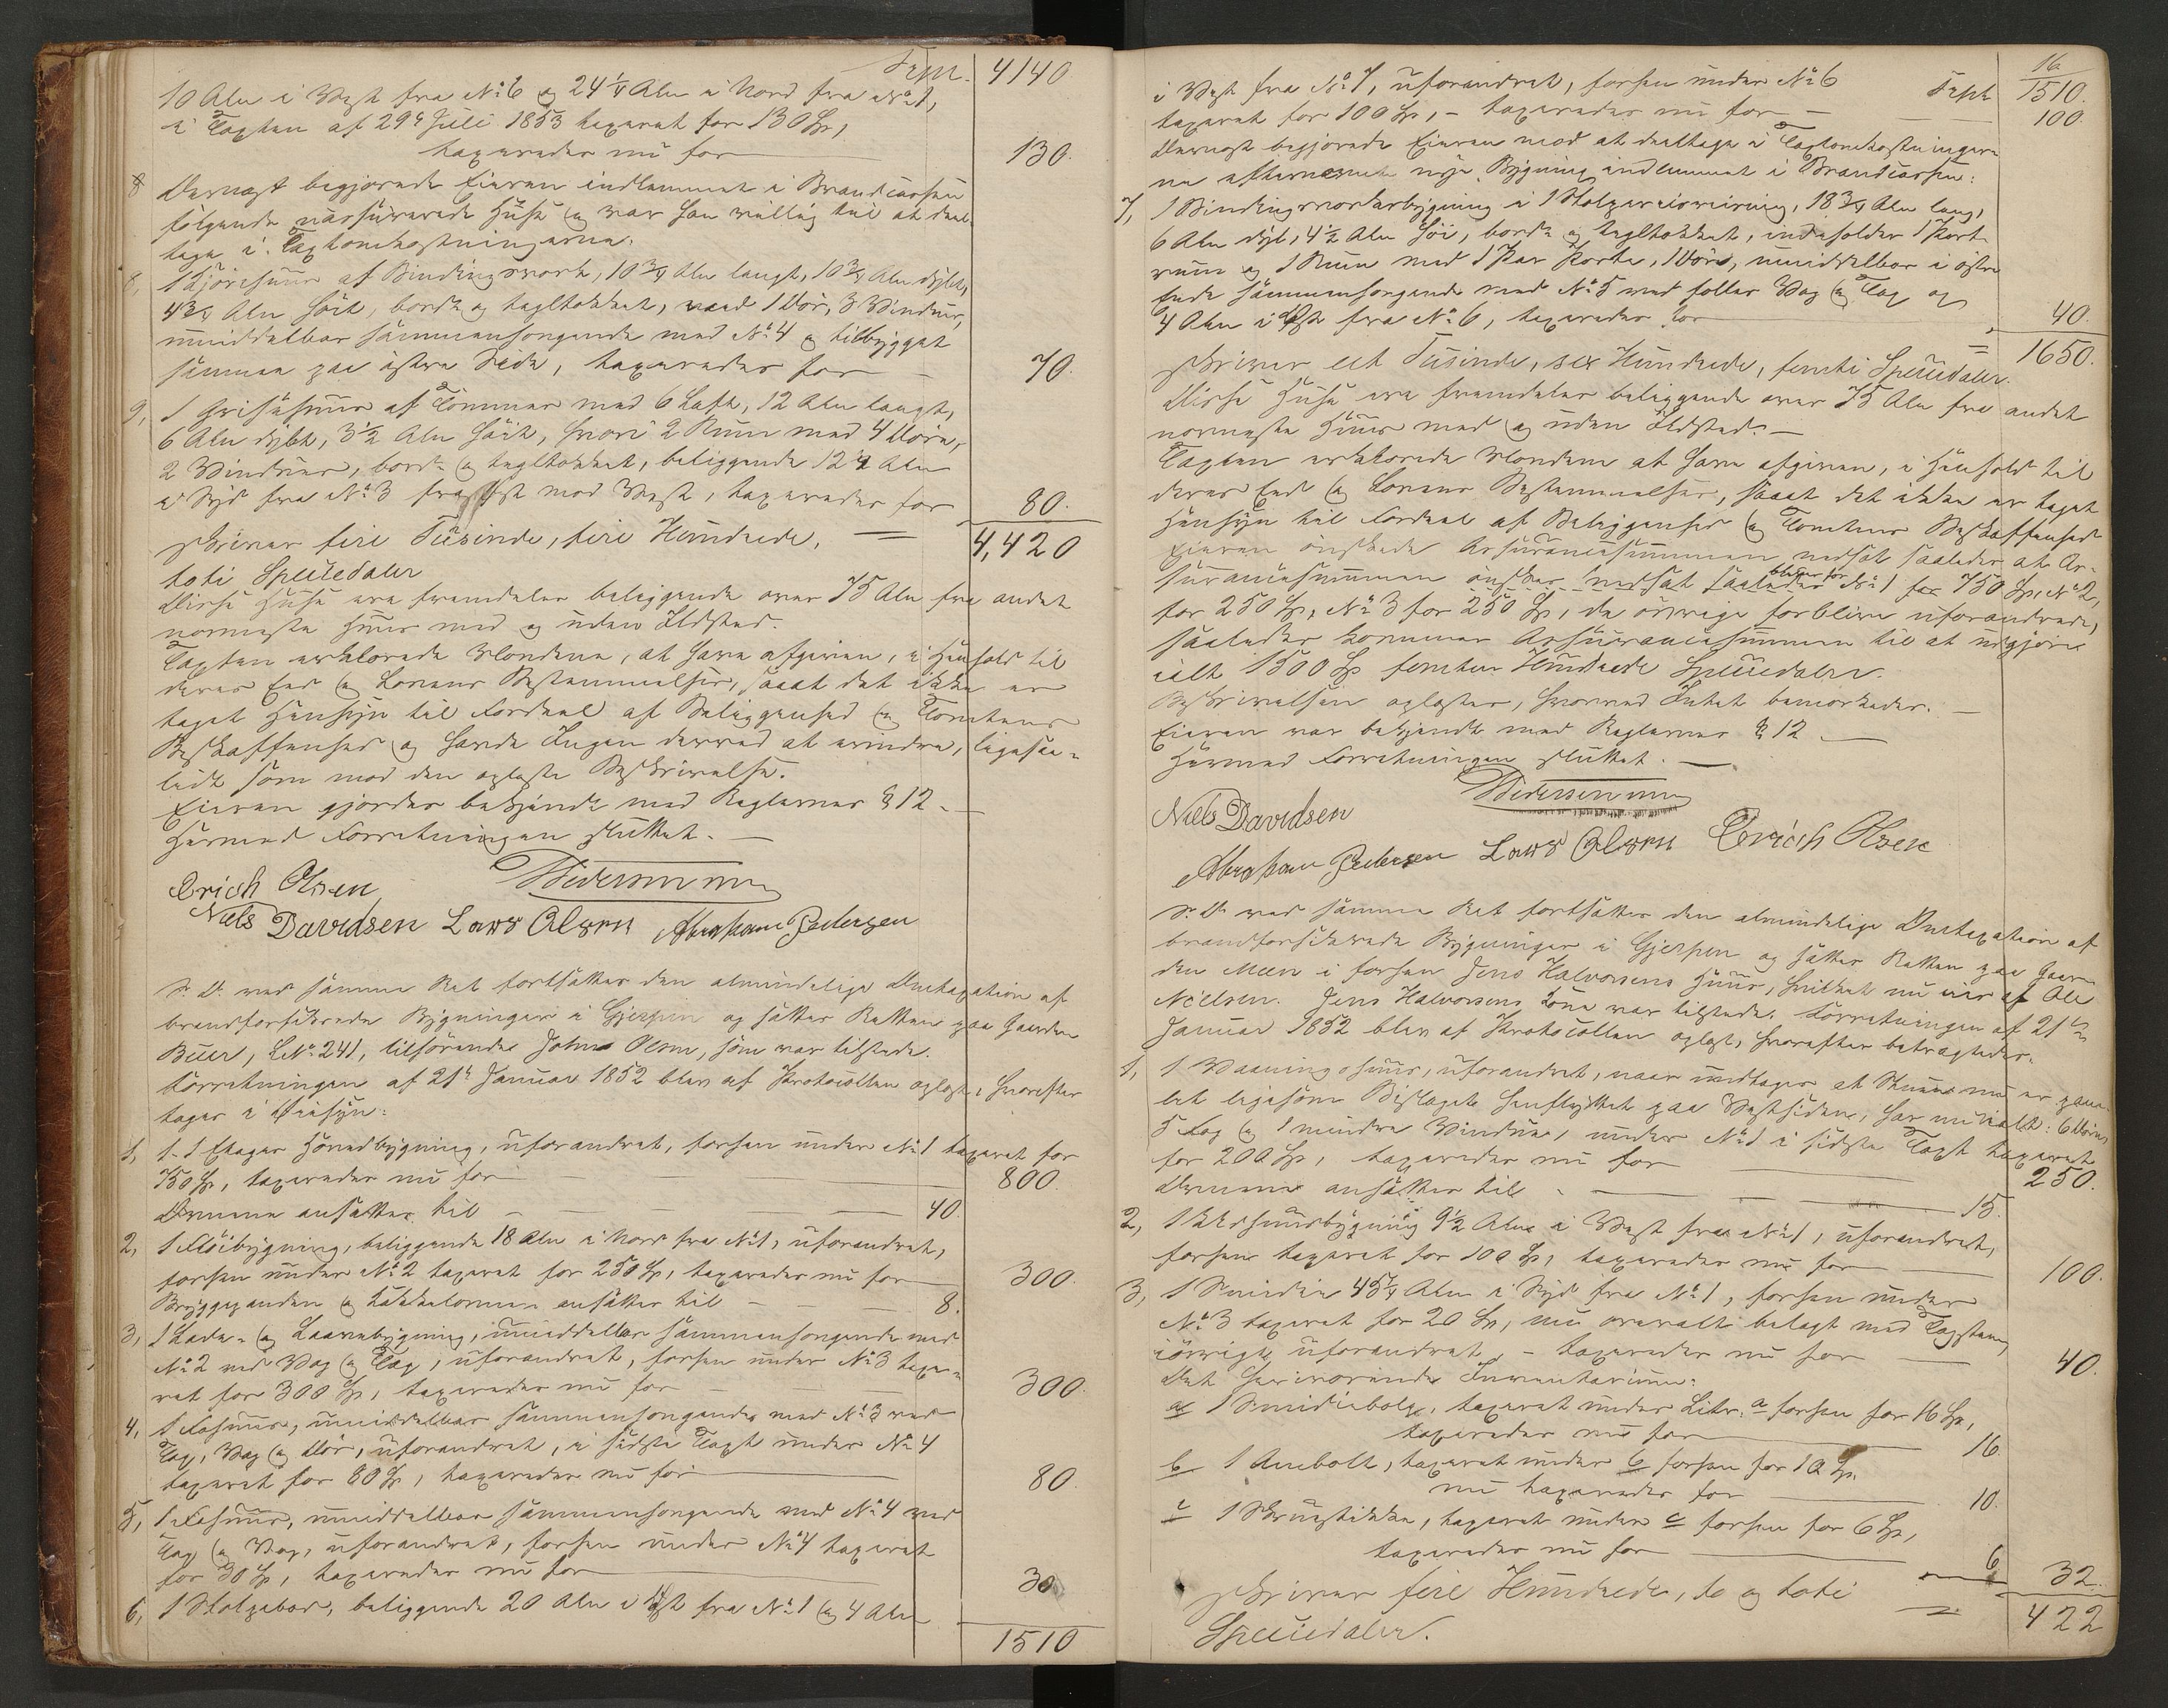 Trpt. 4140
10 Alen i Vest fra No 6 og 24¼ Alen i Nord fra No 1,
i Taxten af 29de Juli 1853 taxeret for 130 Sp,
taxeredes nu for 130.
8 Dernæst begjærede Eieren indlemmet i Brandcassen
følgende uassurerede Huse og var han villig til at deel-
tage i Taxtomkostningerne.
8, af Bindingsværk, 10¾ Alen langt, 10¾ Alen dybt,
4¾ Alen høit, bord- og tegltækket, med 1 Dør, 3 Vinduer,
umiddelbar sammenhængende med No 4 og tilbygget
samme paa østre Side, taxeredes for 70.
9, 1 Grisehuus af Tømmer med 6 Laft, 12 Alen langt,
6 Alen dybt, 3½ Alen høit, hvori 2 Rum med 4 Døre,
2 Vinduer, bord- og tegltækket, beliggende 12½ Alen
i Syd fra No 3 mod Vest, taxeredes for 80.
skriver fire Tusinde, fire Hundrede, = 4,420
toti Speciedaler
Disse Huse ere fremdeles beliggende over 75 Alen fra andet
nærmeste Huus med og uden Ildsted.
Taxten erklærede Mændene, at have afgiven, i Henhold til
deres Eed og Lovens Bestemmelser, saaat det ikke er
taget Hensyn til Fordeel af Beliggenhed og Tomtens
Beskaffenhed og havde Ingen derved at erindre, ligesaa-
lidt som mod den oplæste Beskrivelse.
Eieren gjordes bekjendt med Reglernes § 12 -
Hermed Forretningen sluttet. -
Erich Olsen
Niels Davidsen Lars Olsen Abraham Pedersen
S: D: ved samme Ret fortsattes den almindelige Omtaxation af
brandforsikrede Bygninger i Gjerpen og sattes Retten paa Gaarden
Buer, LNo 241, tilhørende John Olsen, som var tilstede.
Forretningen af 21de Januar 1852 blev af Protocollen oplæst, hvorefter
toges i Øiesyn:
1, 1. 1 Etages Hovedbygning, uforandret, forhen under No 1 taxeret for
750 Sp, taxeredes nu for 800.
Ovnene ansættes til 40.
2, 1 Fløibygning, beliggende 18 Alen i Nord fra No 1, uforandret,
forhen under No 2 taxeret for 250 Sp, taxeredes nu for 300.
Bryggepanden og ansættes til 8.
3, 1 Lade- og Laavebygning, umiddelbar sammenhængende med
No 2 ved Væg og Tag, uforandret, forhen under No 3 taxe-
ret for 300 Sp, taxeredes nu for 300.
4, 1 Fæhuus, umiddelbar sammenhængende med No 3 ved
Tag, Væg og Dør, uforandret, i sidste Taxt under No 4
taxeret for 80 Sp, taxeredes nu for 80.
5, 1 Fæhuus, umiddelbar sammenhængende med No 4 ved
Tag og Væg, uforandret, forhen under No 4 taxeret
for 30 Sp, taxeredes nu for 30
6, 1 Stolpebod, beliggende 20 Alen i Øst fra No 1 og 4 Alen
1510
16
i Vest fra No 7, uforandret, forhen under No 6 Trpt 1510.
taxeret for 100 Sp, - taxeredes nu for 100.
Dernæst begjærede Eieren mod at deeltage i Taxtomkostningerne
efternævnte nye Bygning indlemmet i Brandcassen:
7, 1 Bindingsværksbygning i 1 18¾ Alen lang,
6 Alen dyb, 4½ Alen høi, bord- og tegltækket, indeholder 1 Port-
rum og 1 Rum med 1 Par Porte, 1 Dør, umiddelbar i østre
Ende sammenhængende med No 5 med fælles Væg og Tag og
4 Alen i Øst fra No 6, taxeredes for 40.
skriver eet Tusinde, sex Hundrede, femti Speciedaler. = 1650.
Disse Huse ere fremdeles beliggende over 75 Alen fra andet
nærmeste Huus med og uden Ildsted. -
Taxten erklærede Mændene at have afgiven, i Henhold til
deres Eed og Lovens Bestemmelser, saaat det ikke er taget
Hensyn til Fordeel af Beliggenhed og Tomtens Beskaffenhed
Eieren ønskede Assurancesummen nedsat saaledes at As-
surancesummen ønskes nedsat saaledes bliver for No 1 for 750 Sp, No 2,
for 250 Sp, No 3 for 250 Sp, de øvrige forblive uforandrede,
saaledes kommer Assurancesummen til at udgjøre
ialt 1500 Sp femten Hundrede Speciedaler.
Beskrivelsen oplæstes, hvorved Intet bemærkedes. -
Eieren var bekjendt med Reglernes § 12 -
Hermed Forretningen sluttet. -
Niels Davidsen
Abraham Pedersen Lars Olsen Erich Olsen
S: D: ved samme Ret fortsattes den almindelige Omtaxation af
brandforsikrede Bygninger i Gjerpen og sattes Retten paa Gaar-
den Meen i forhen Jens Halvorsens Huus, hvilket nu eies af Ole
Nielsen. Jens Halvorsens Kone var tilstede. Forretningen af 21de
Januar 1852 blev af Protocollen oplæst, hvorefter betragtedes:
1, 1 Vaaningshuus, uforandret, naar undtages at nu er
ligesom Bislaget henflyttet paa Vestsiden, har nu ialt: 6 Døre,
5 Fag og 1 mindre Vindue, under No 1 i sidste Taxt taxeret
for 200 Sp, taxeredes nu for 250.
Ovnene ansættes til 15.
2, 1 Ildhuusbygning 9½ Alen i Vest fra No 1, uforandret,
forhen taxeret for 100 Sp, taxeredes nu for 100.
3, 1 Smidie 45¼ Alen i Syd fra No 1, forhen under
No 3 taxeret for 20 Sp, nu overalt belagt med Tagsteen,
iøvrigt uforandret, - taxeredes nu for 40.
Det henværende Inventarium:
a 1 Smidiebelg, taxeret under Litr. a forhen for 16 Sp,
taxeredes nu for 16.
b 1 Ambolt, taxeret under b forhen for 10 Sp.
nu taxeredes for 10.
c 1 Skruestikke, taxeret under c forhen for 6 Sp,
taxeredes nu for 6 32.
skriver fire Hundrede, to og toti = 422
Speciedaler.